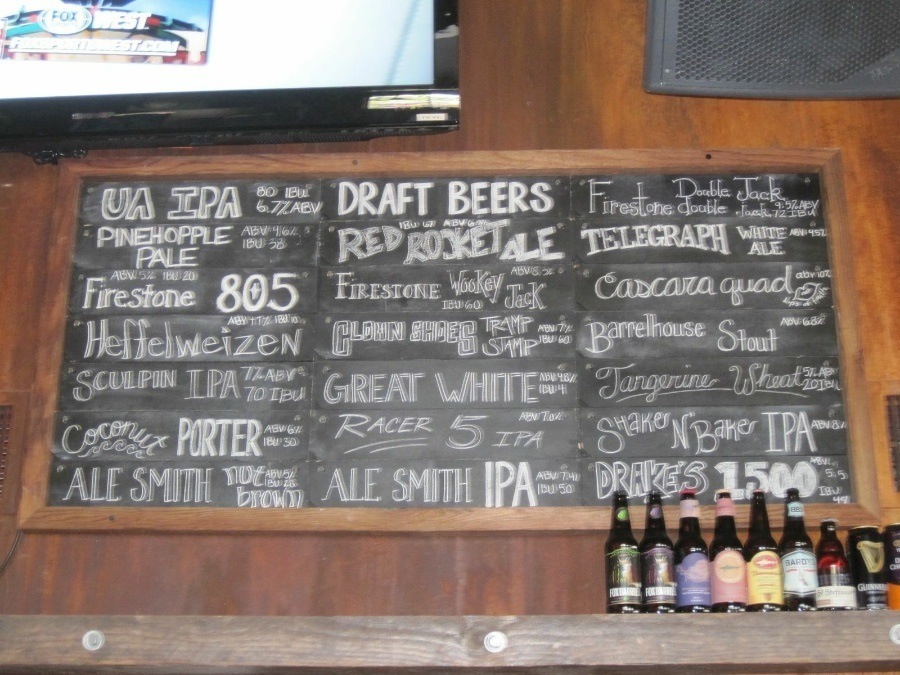 FOX WEST
FOXSPORTSWEST.COM
UA IPA 80 IBU 6.7% ABV
PINEHOPPLE PALE ABV 4.6% IBU 38
Firestone 805 ABV 5% IBU 20
Heffelweizen
SCULPIN IPA 7% ABV 70 IBU
Coconut PORTER ABV 6% IBU 30
ALE SMITH nut brown ABV 5%
DRAFT BEERS
RED ROCKET ALE IBU 67
FIRESTONE WOOKEY JACK IBU 60
CLOWN SHOES TRAMP STAMP ABV 7% IBU 60
GREAT WHITE ABV 4.8%
RACER 5 IPA ABV 7.0%
ALE SMITH IPA IBU 50
Firestone Double Jack
double Jack 9.5% ABV 72 IBU
TELEGRAPH WHITE ALE ABV 4.5%
Cascara quad ABV 10%
Barrelhouse Stout ABV 6.8%
Tangerine Wheat 5% ABV 20 IBU
SHAKE N' BAKE IPA ABV 8%
DRAKE'S 1500 ABV 5.5% IBU
BARD'S
GUINNESS